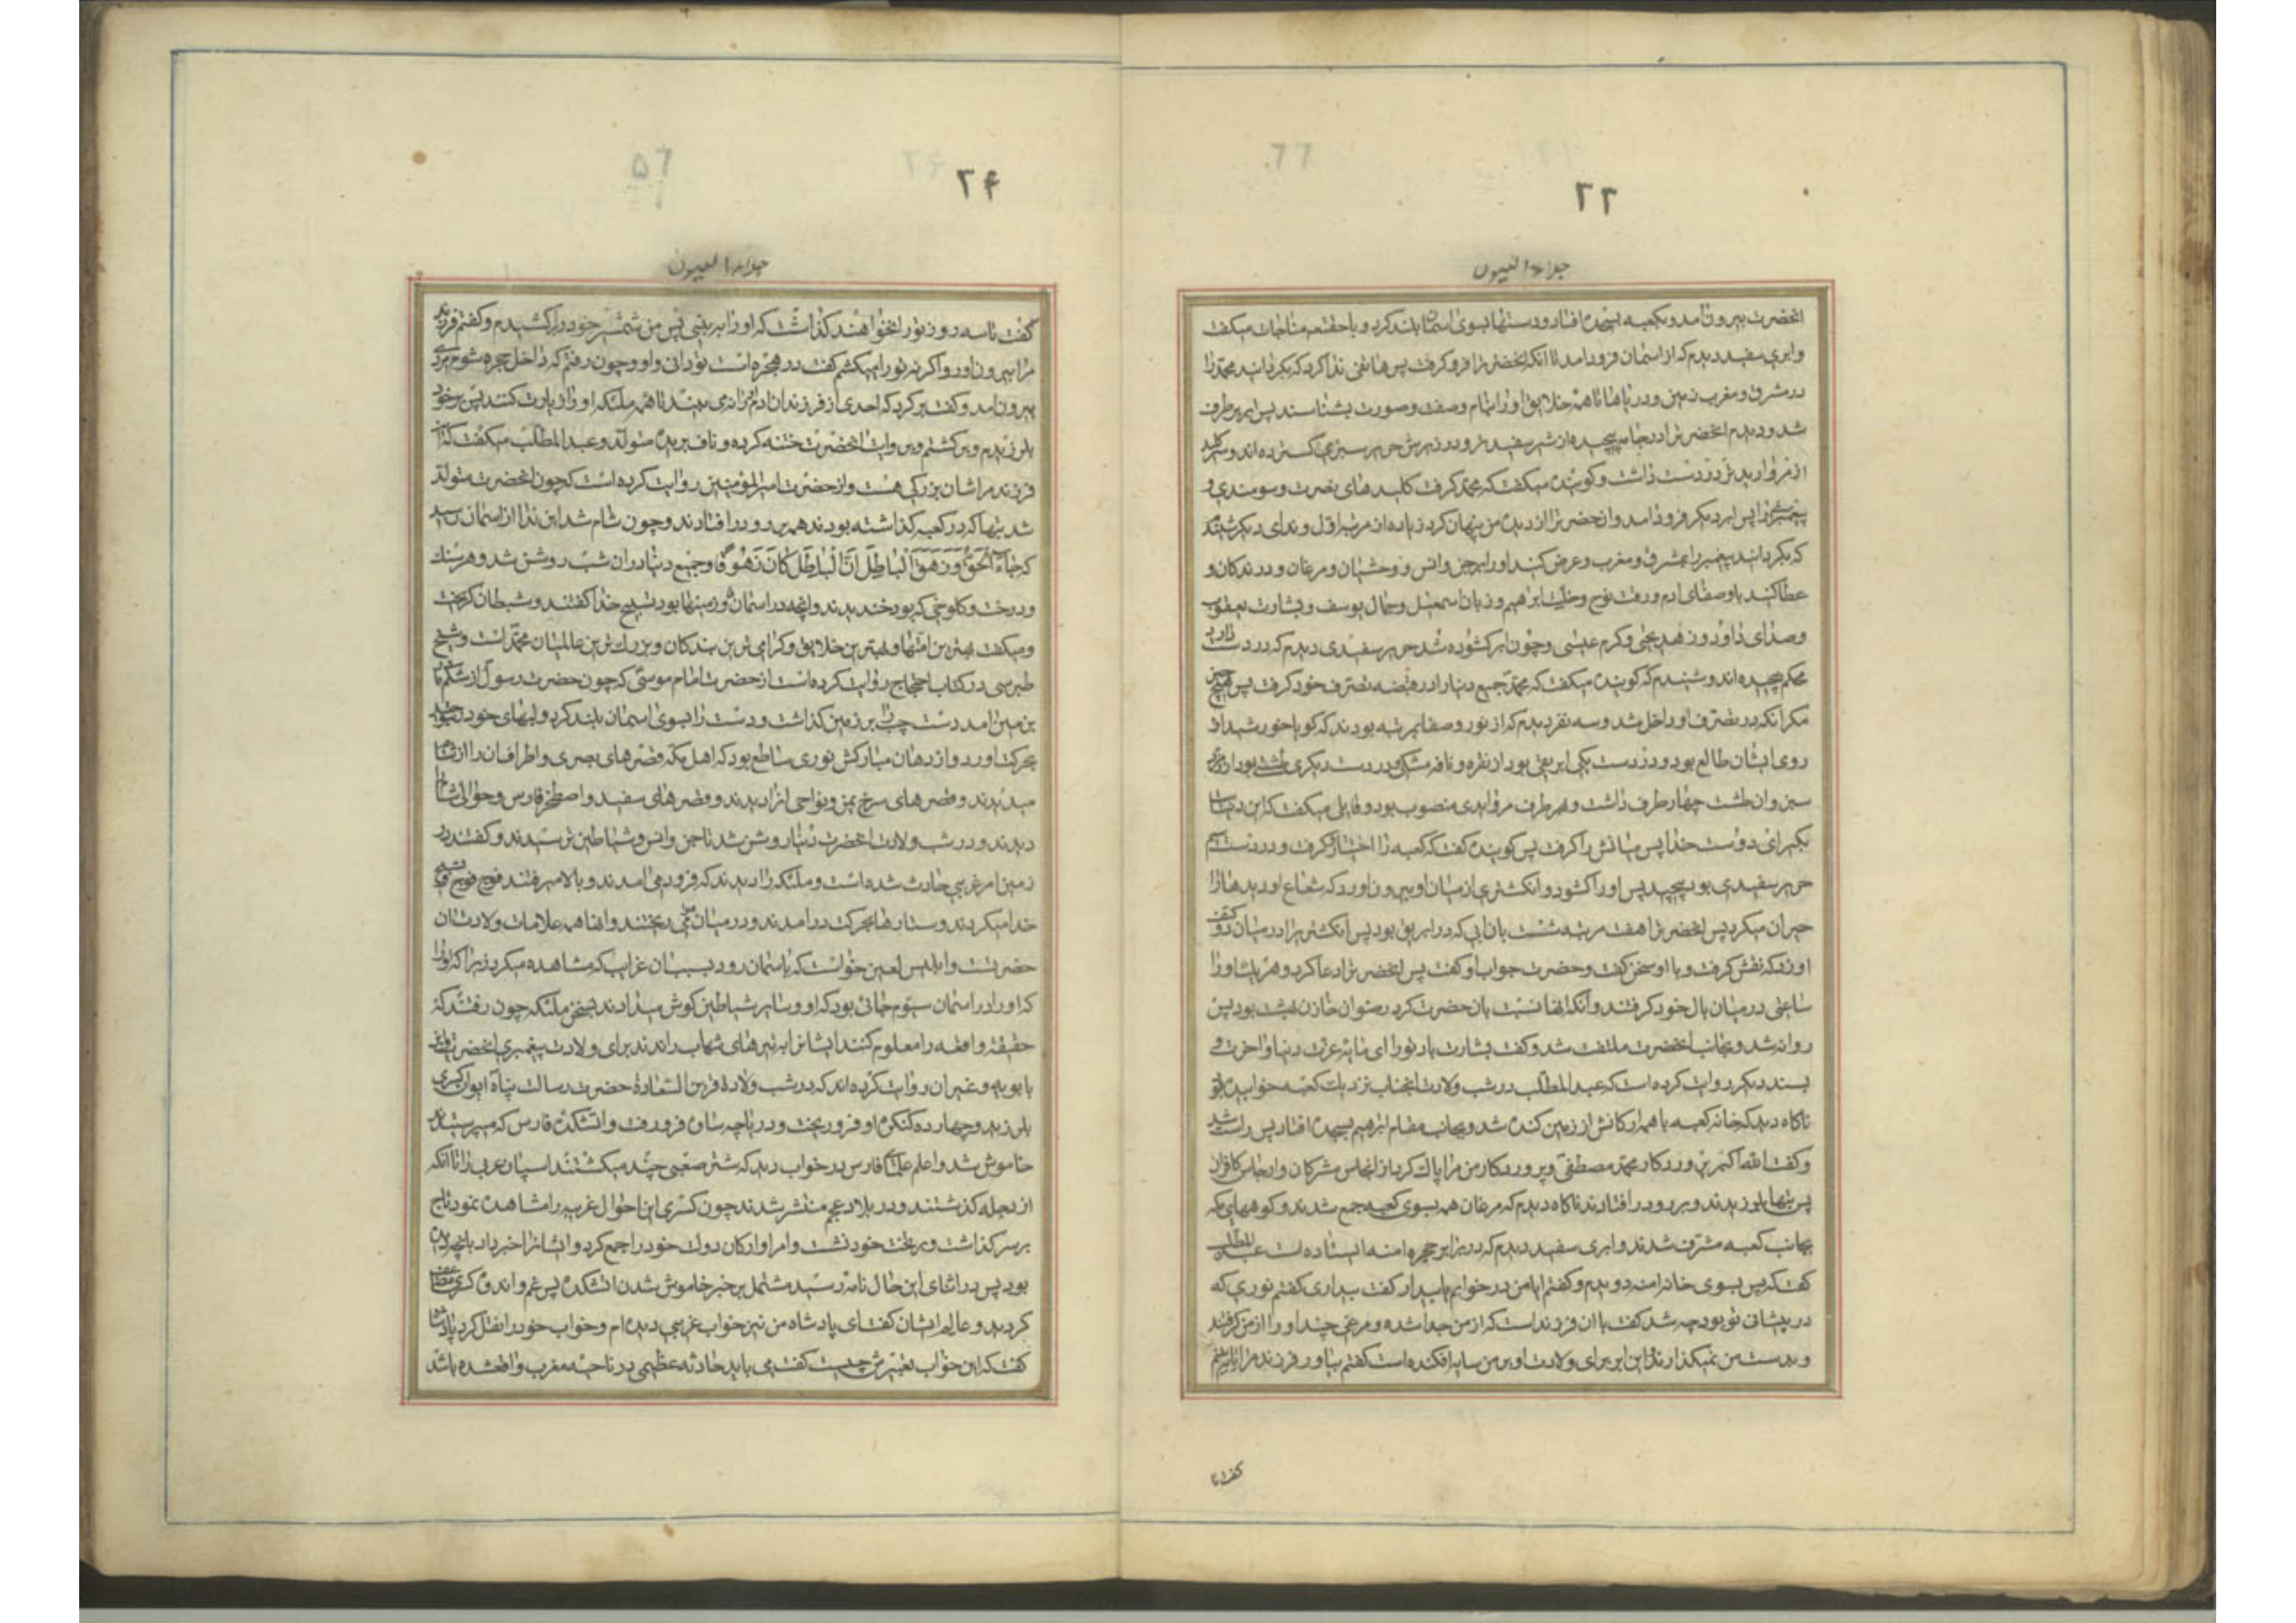 ۲۳
جلاء العیون
انحضرت بیرون امد و بکعبه بسجده افتاد و دستها بسوی اسمان بلند کرد و با حقتعم مناجات میکفت
و ابری سفید دیدم که از اسمان فرود امد تا انکه انحضرترا فرو کرفت پس هاتفی ندا کرد که بکردانید محمد را
در مشرق و مغرب زمین و دریاها تا همه خلایق او را بنام و صفت و صورت بشناسند پس ابر برطرف
شد و دیدم انحضرترا در جامه پیچیده از شیر سفید تر و در زیرش حریر سبزی کسترده اند و سه کلید
از مروارید تر در دست داشت و کوینده میکفت که محمد کرفت کلیدهای نصرت و سودمندی و
پیغمبری را پس ابر دیکر فرود امد و انحضرترا از دیده من پنهان کرد زیاده از مرتبه اول و ندای دیکر شنیدم
که بکردانید پیغمبر را بمشرق و مغرب و عرض کنید او را بر جن و انس و وحشیان و مرغان و درندکان و
عطا کنید باو صفای ادم و رقت نوح و خلت ابراهیم و زبان اسمعیل و جمال یوسف و بشارت یعقوب
و صدای داود و زهد یحیی و کرم عیسی و چون ابر کشوده شد حریر سفیدی دیدم که در دست دارد
محکم پیچیده اند و شنیدم که کوینده میکفت که محمد جمیع دنیا را در قبضه تصرف خود کرفت پس هیچ چیز
مکر انکه در تصرف او داخل شد و سه نفر دیدم که از نور و صفا بمرتبه بودند که کویا خورشید از
روی ایشان طالع بود و در دست یکی ابریقی بود از نقره و نافه مشکی و در دست دیکری طشتی بود از زمرد
سبز و ان طشت چهار طرف داشت و بهر طرف مرواریدی منصوب بود و قایلی میکفت که این دنیاست
بکیر ای دوست خدا پس میانش را کرفت پس کوینده کفت که کعبه را اختیار کرفت و در دست سیم
حریر سفیدی بود پیچیده پس او را کشود و انکشتری از میان او بیرون اورد که شعاع او دیدها را
حیران میکرد پس انحضرترا هفت مرتبه شست بان ابی که در ابریق بود پس انکشتر را در میان دو کتف
او زد که نقش کرفت و با او سخن کفت و حضرت جواب او کفت پس انحضرترا دعا کرد و هر یک او را
ساعتی در میان بال خود کرفتند و انکه انها نسبت بان حضرت کرد رضوان خازن بهشت بود پس
روانه شد و بجانب انحضرت ملتفت شد و کفت بشارت باد تو را ای مایه عزت دنیا و اخرت و
بسند دیکر روایت کرده است که عبد المطلب در شب ولادت انجناب نزدیک کعبه خوابیده بود
ناکاه دید که خانه کعبه با همه ارکانش از زمین کنده شد و بجانب مقام ابراهیم بسجده افتاد پس راست شد
و کفت الله اکبر پروردکار محمد مصطفی و پروردکار من مرا پاک کرد از انجاس مشرکان و ارجاس کافران
پس بتها بلرزیدند و بر رو در افتادند ناکاه دیدم که مرغان همه بسوی کعبه جمع شدند و کوههای مکه
بجانب کعبه مشرف شدند و ابری سفید دیدم که در برابر حجره امنه ایستاده است عبد المطلب
کفت که پس بسوی خانه امنه دویدم و کفتم ایا من در خوابم یا بیدار کفت بیداری کفتم نوری که
در پیشانی تو بود چه شد کفت با ان فرزند است که از من جدا شده و مرغی چند او را از من کرفتند
و بدست من نمیکذارند و این ابر برای ولادت او بر من سایه افکنده است کفتم بیاور فرزند مرا تا ببینم
کفت تا
۲۴
57
جلاء العیون
کفت تا سه روز تو را نخواهند کذاشت که او را ببینی پس من شمشیر خود را کشیدم و کفتم فرزند
مرا بیرون اور و اکر نه تو را میکشم کفت در حجره است تو دانی و او و چون رفتم که داخل حجره شوم مردی
بیرون امد و کفت برکرد که احدی از فرزندان ادم او را نمی بیند تا همه ملئکه او را زیارت کنند پس بر خود
بلرزیدم و برکشتم و بروایت انحضرت ختنه کرده و ناف بریده متولد و عبد المطلب میکفت که این
فرزند مرا شان بزرکی هست و از حضرت امیر المؤمنین روایت کرده است که چون انحضرت متولد
شد بتها که در کعبه کذاشته بودند همه بر رو در افتادند و چون شام شد این ندا از اسمان رسید
که جَاءَ الْحَقُّ وَزَهَقَ الْبَاطِلُ اِنَّ الْبَاطِلَ کَانَ زَهُوقًا و جمیع دنیا در ان شب روشن شد و هر سنک
و درخت و کلوخی که بود خندیدند و انچه در اسمان و زمینها بود تسبیح خدا کفتند و شیطان کریخت
و میکفت بهترین امتها و بهترین خلایق و کرامی ترین بندکان و بزرک ترین عالمیان محمد است و شیخ
طبرسی در کتاب احتجاج روایت کرده است از حضرت امام موسی که چون حضرت رسول از شکم مادر
بزمین امد دست چپ را بر زمین کذاشت و دست راست بسوی اسمان بلند کرد و لبهای خود را بتوحید
بحرکت اورد و از دهان مبارکش نوری ساطع بود که اهل مکه قصرهای بصری و اطراف ان را از شام
میدیدند و قصرهای سرخ یمن و نواحی انرا دیدند و قصرهای سفید و اصطخر فارس و حوالی انرا
دیدند و در شب ولادت انحضرت دنیا روشن شد تا جن و انس و شیاطین ترسیدند و کفتند در
زمین امر غریبی حادث شده است و ملئکه را دیدند که فرود می امدند و بالا میرفتند فوج فوج و تسبیح
خدا میکردند و ستارها بحرکت در امدند و در میان هوا می ریختند و اینها همه علامات ولادت ان
حضرتست و ابلیس لعین خواست که باسمان رود بسبب ان غرایب که مشاهده میکرد زیرا که او را
که او را در اسمان سیوم جائی بود که او و سایر شیاطین کوش میدادند بسخن ملئکه چون رفتند که
حقیقه واقعه را معلوم کنند ایشانرا به تیرهای شهاب راندند برای ولادت پیغمبری انحضرت و ابن
بابویه و غیر ان روایت کرده اند که در شب ولادة قرین السعادة حضرت رسالت پناه ایوان کسری
بلرزید و چهارده کنکره او فرو ریخت و دریاچه ساوه فرو رفت و اتشکده فارس که میپرستیدند
خاموش شد و اعلم علمای فارس در خواب دید که شتر صعبی چند میکشتند اسپان عربی را تا انکه
از دجله کذشتند و در بلاد عجم منتشر شدند چون کسری این احوال غریبه را مشاهده نمود تاج
بر سر کذاشت و بر تخت خود نشست و امرا و ارکان دولت خود را جمع کرد و ایشانرا خبر داد بانچه دیده
بود پس در اثنای این حال نامه رسید مشتمل بر خبر خاموش شدن اتشکده پس غم و اندوه کسری مضاعف
کردید و عالم ایشان کفت ای پادشاه من نیز خواب غریبی دیده ام و خواب خود را نقل کرد پادشاه
کفت که این خواب تعبیرش چیست کفت می باید حادثه عظیمی در ناحیه مغرب واقع شده باشد